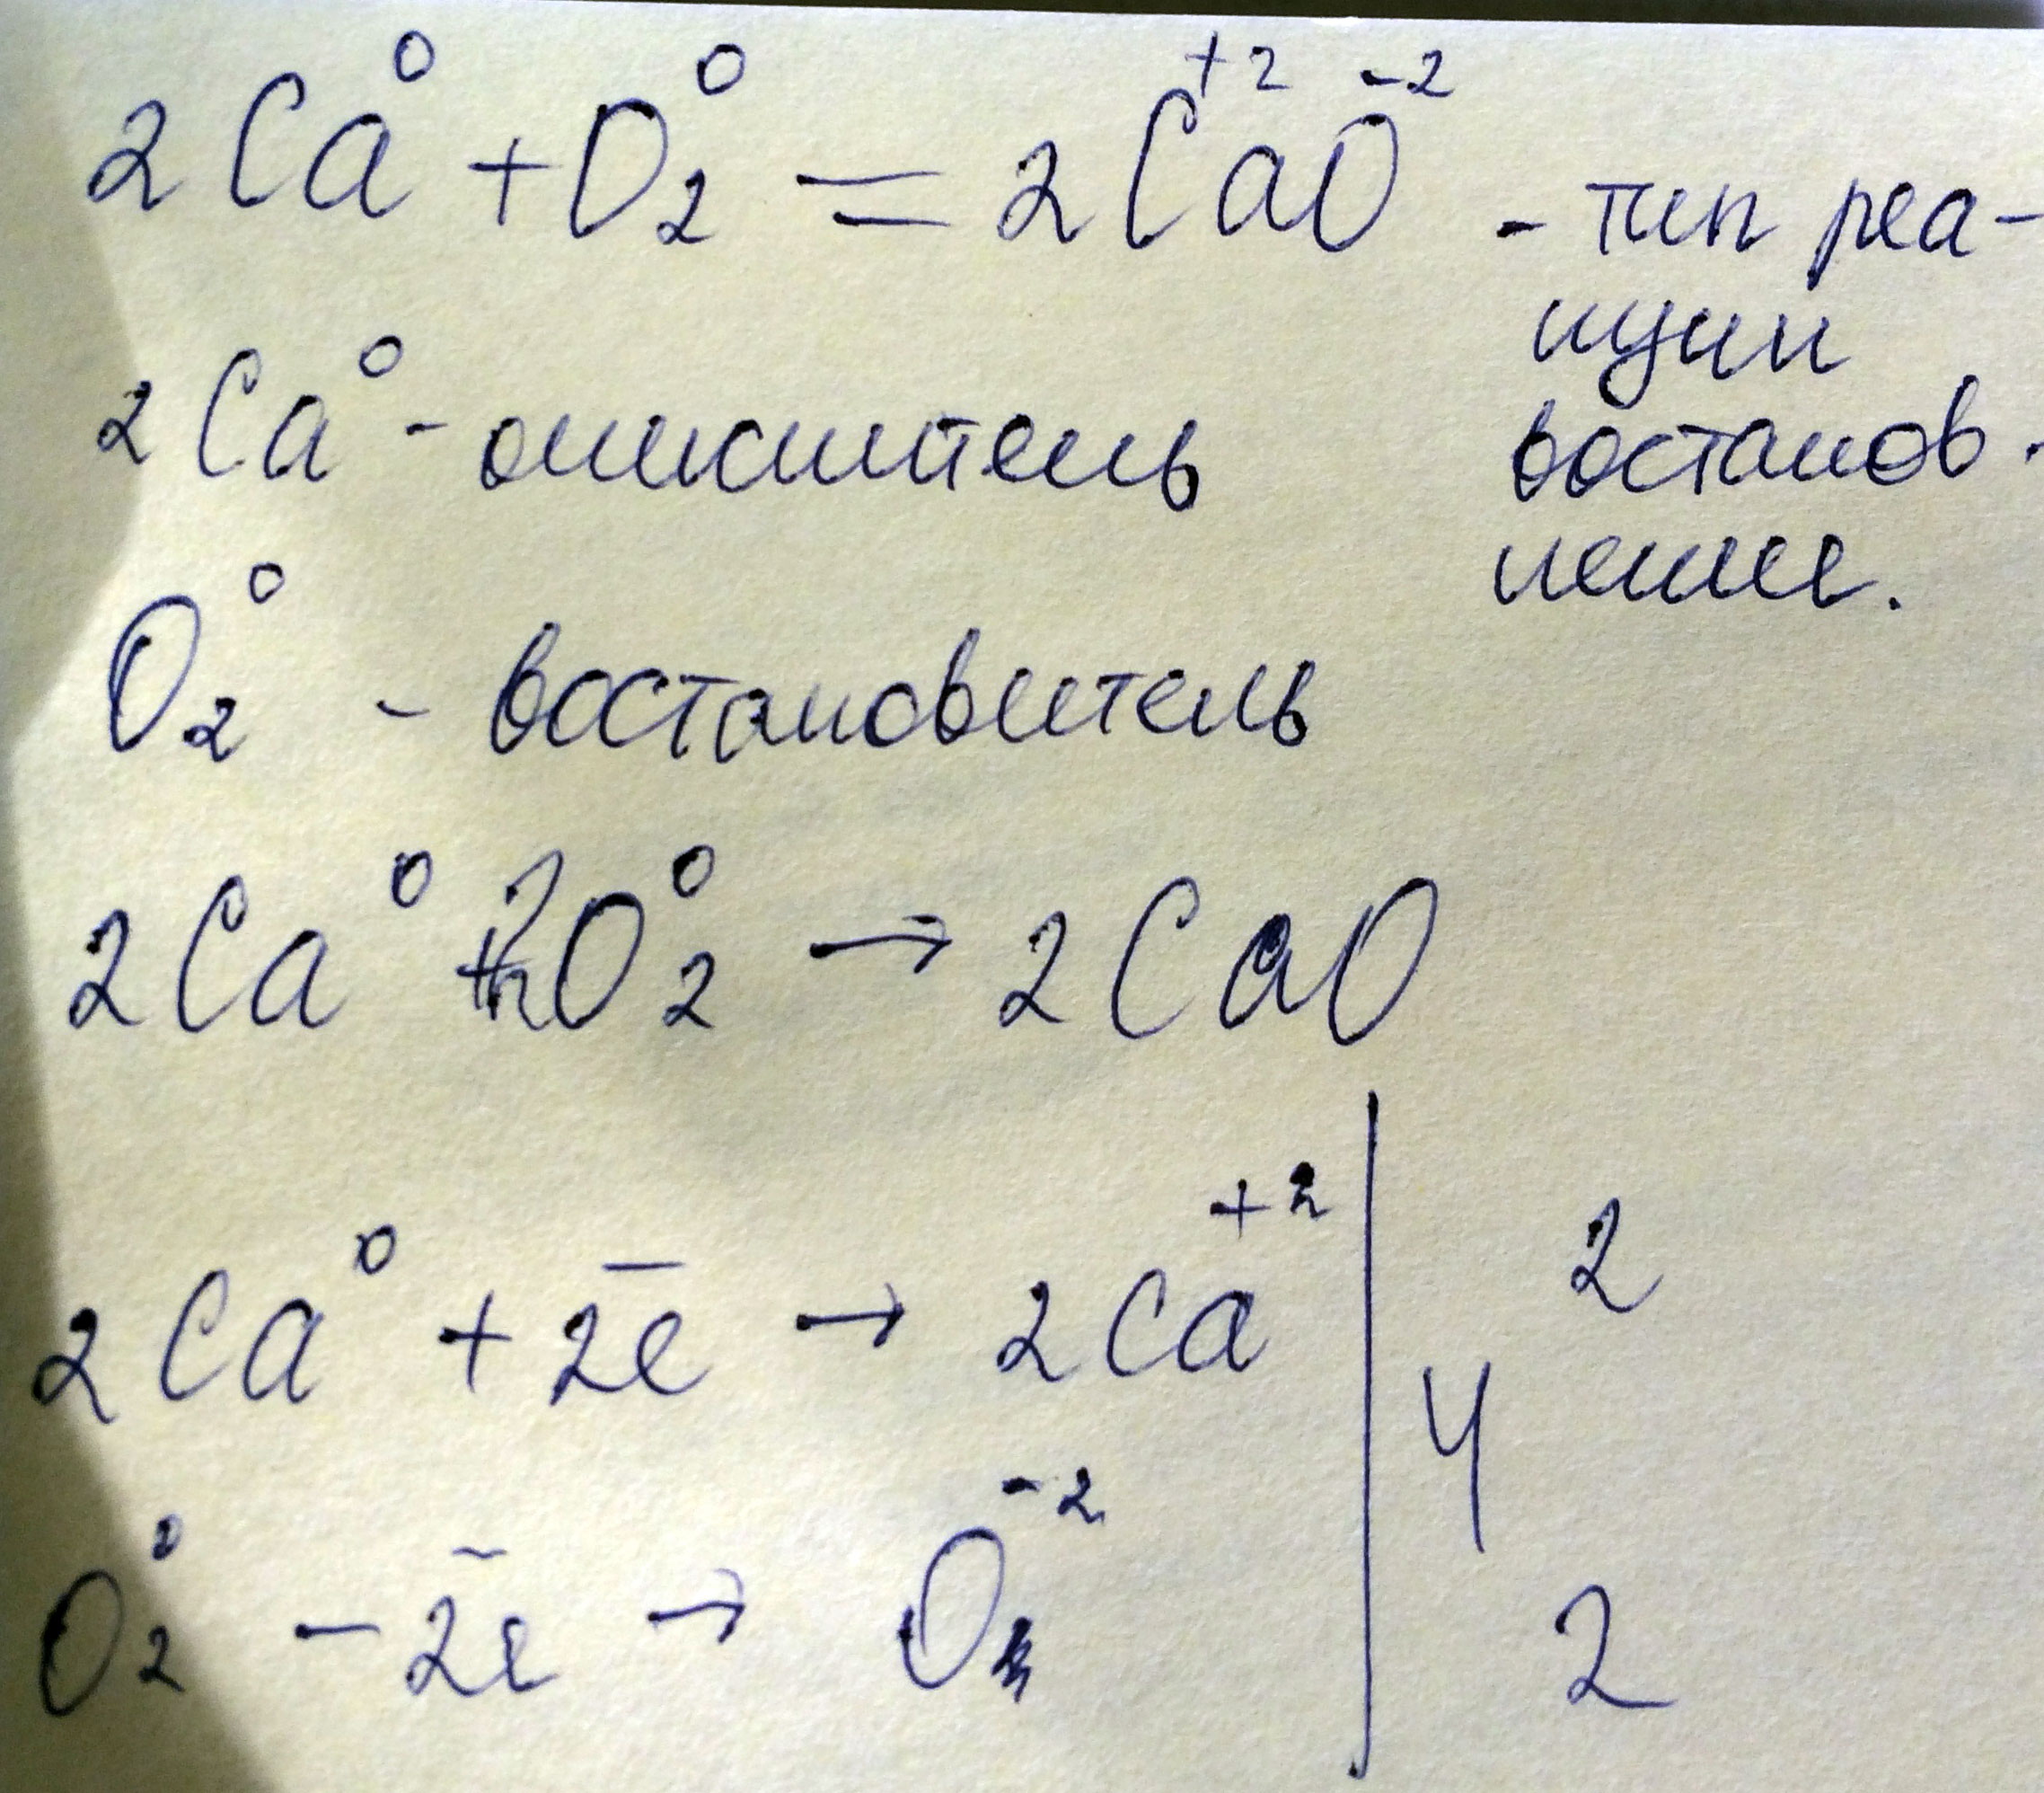 2Ca⁰ + O₂⁰ = 2Ca⁺²O⁻² - тип реа-
иции
востанов.
ление.
2Ca⁰ - окислитель
O₂⁰ - востановитель
2Ca⁰ + O₂⁰ → 2CaO
2Ca⁰ + 2e̅ → 2Ca⁺² | 2
4
O₂⁰ - 2e̅ → O⁻² | 2